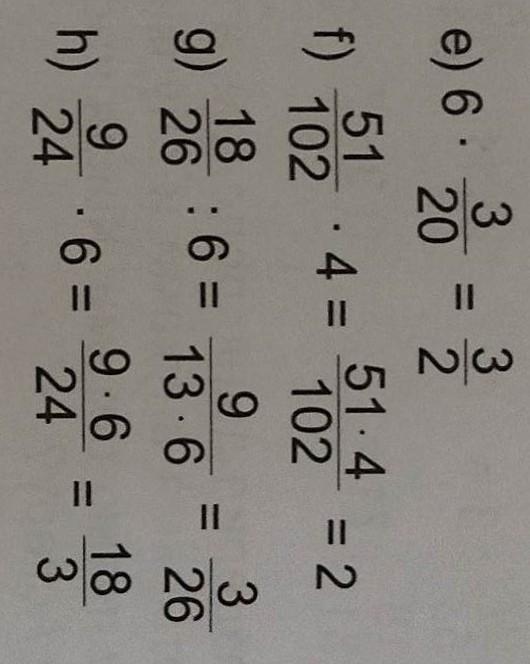 e) 6 · 3/20 = 3/2
f) 51/102 · 4 = 51·4/102 = 2
g) 18/26 : 6 = 9/13·6 = 3/26
h) 9/24 · 6 = 9·6/24 = 18/3